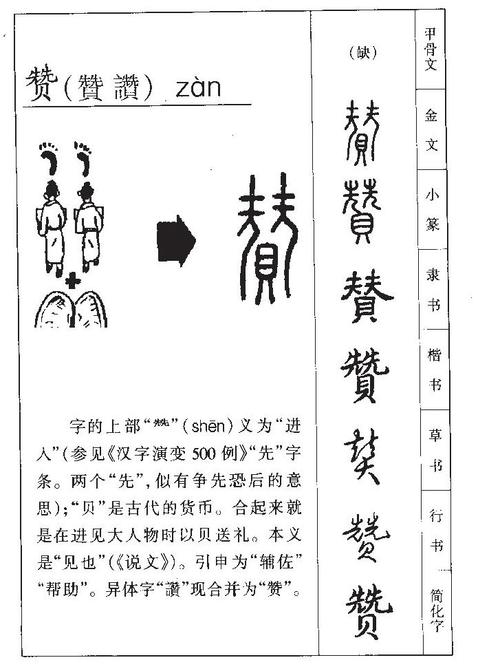 赞（贊 讚）zàn
字的上部“兟”（shēn）义为“进
入”（参见《汉字演变500例》“先”字
条。两个“先”，似有争先恐后的意
思）；“贝”是古代的货币。合起来就
是在进见大人物时以贝送礼。本义
是“见也”（《说文》）。引申为“辅佐”
“帮助”。异体字“讚”现合并为“赞”。
（缺）
甲骨文
金文
小篆
隶书
楷书
草书
行书
简化字